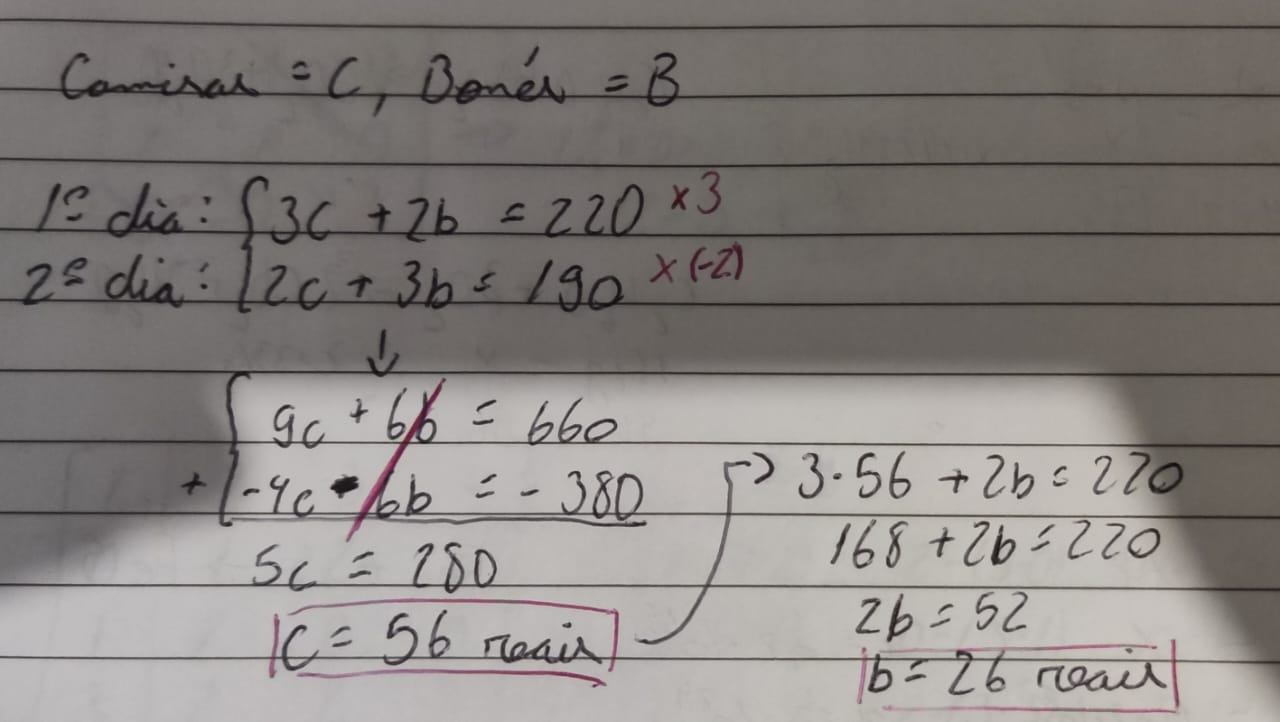 Camisas = C, Bonés = B
1º dia: { 3c + 2b = 220 x 3
2º dia: { 2c + 3b = 190 x (-2)
↓
{ 9c + 6b = 660
+ { -4c - 6b = - 380
5c = 280
c = 56 reais
→ 3·56 + 2b = 220
168 + 2b = 220
2b = 52
b = 26 reais